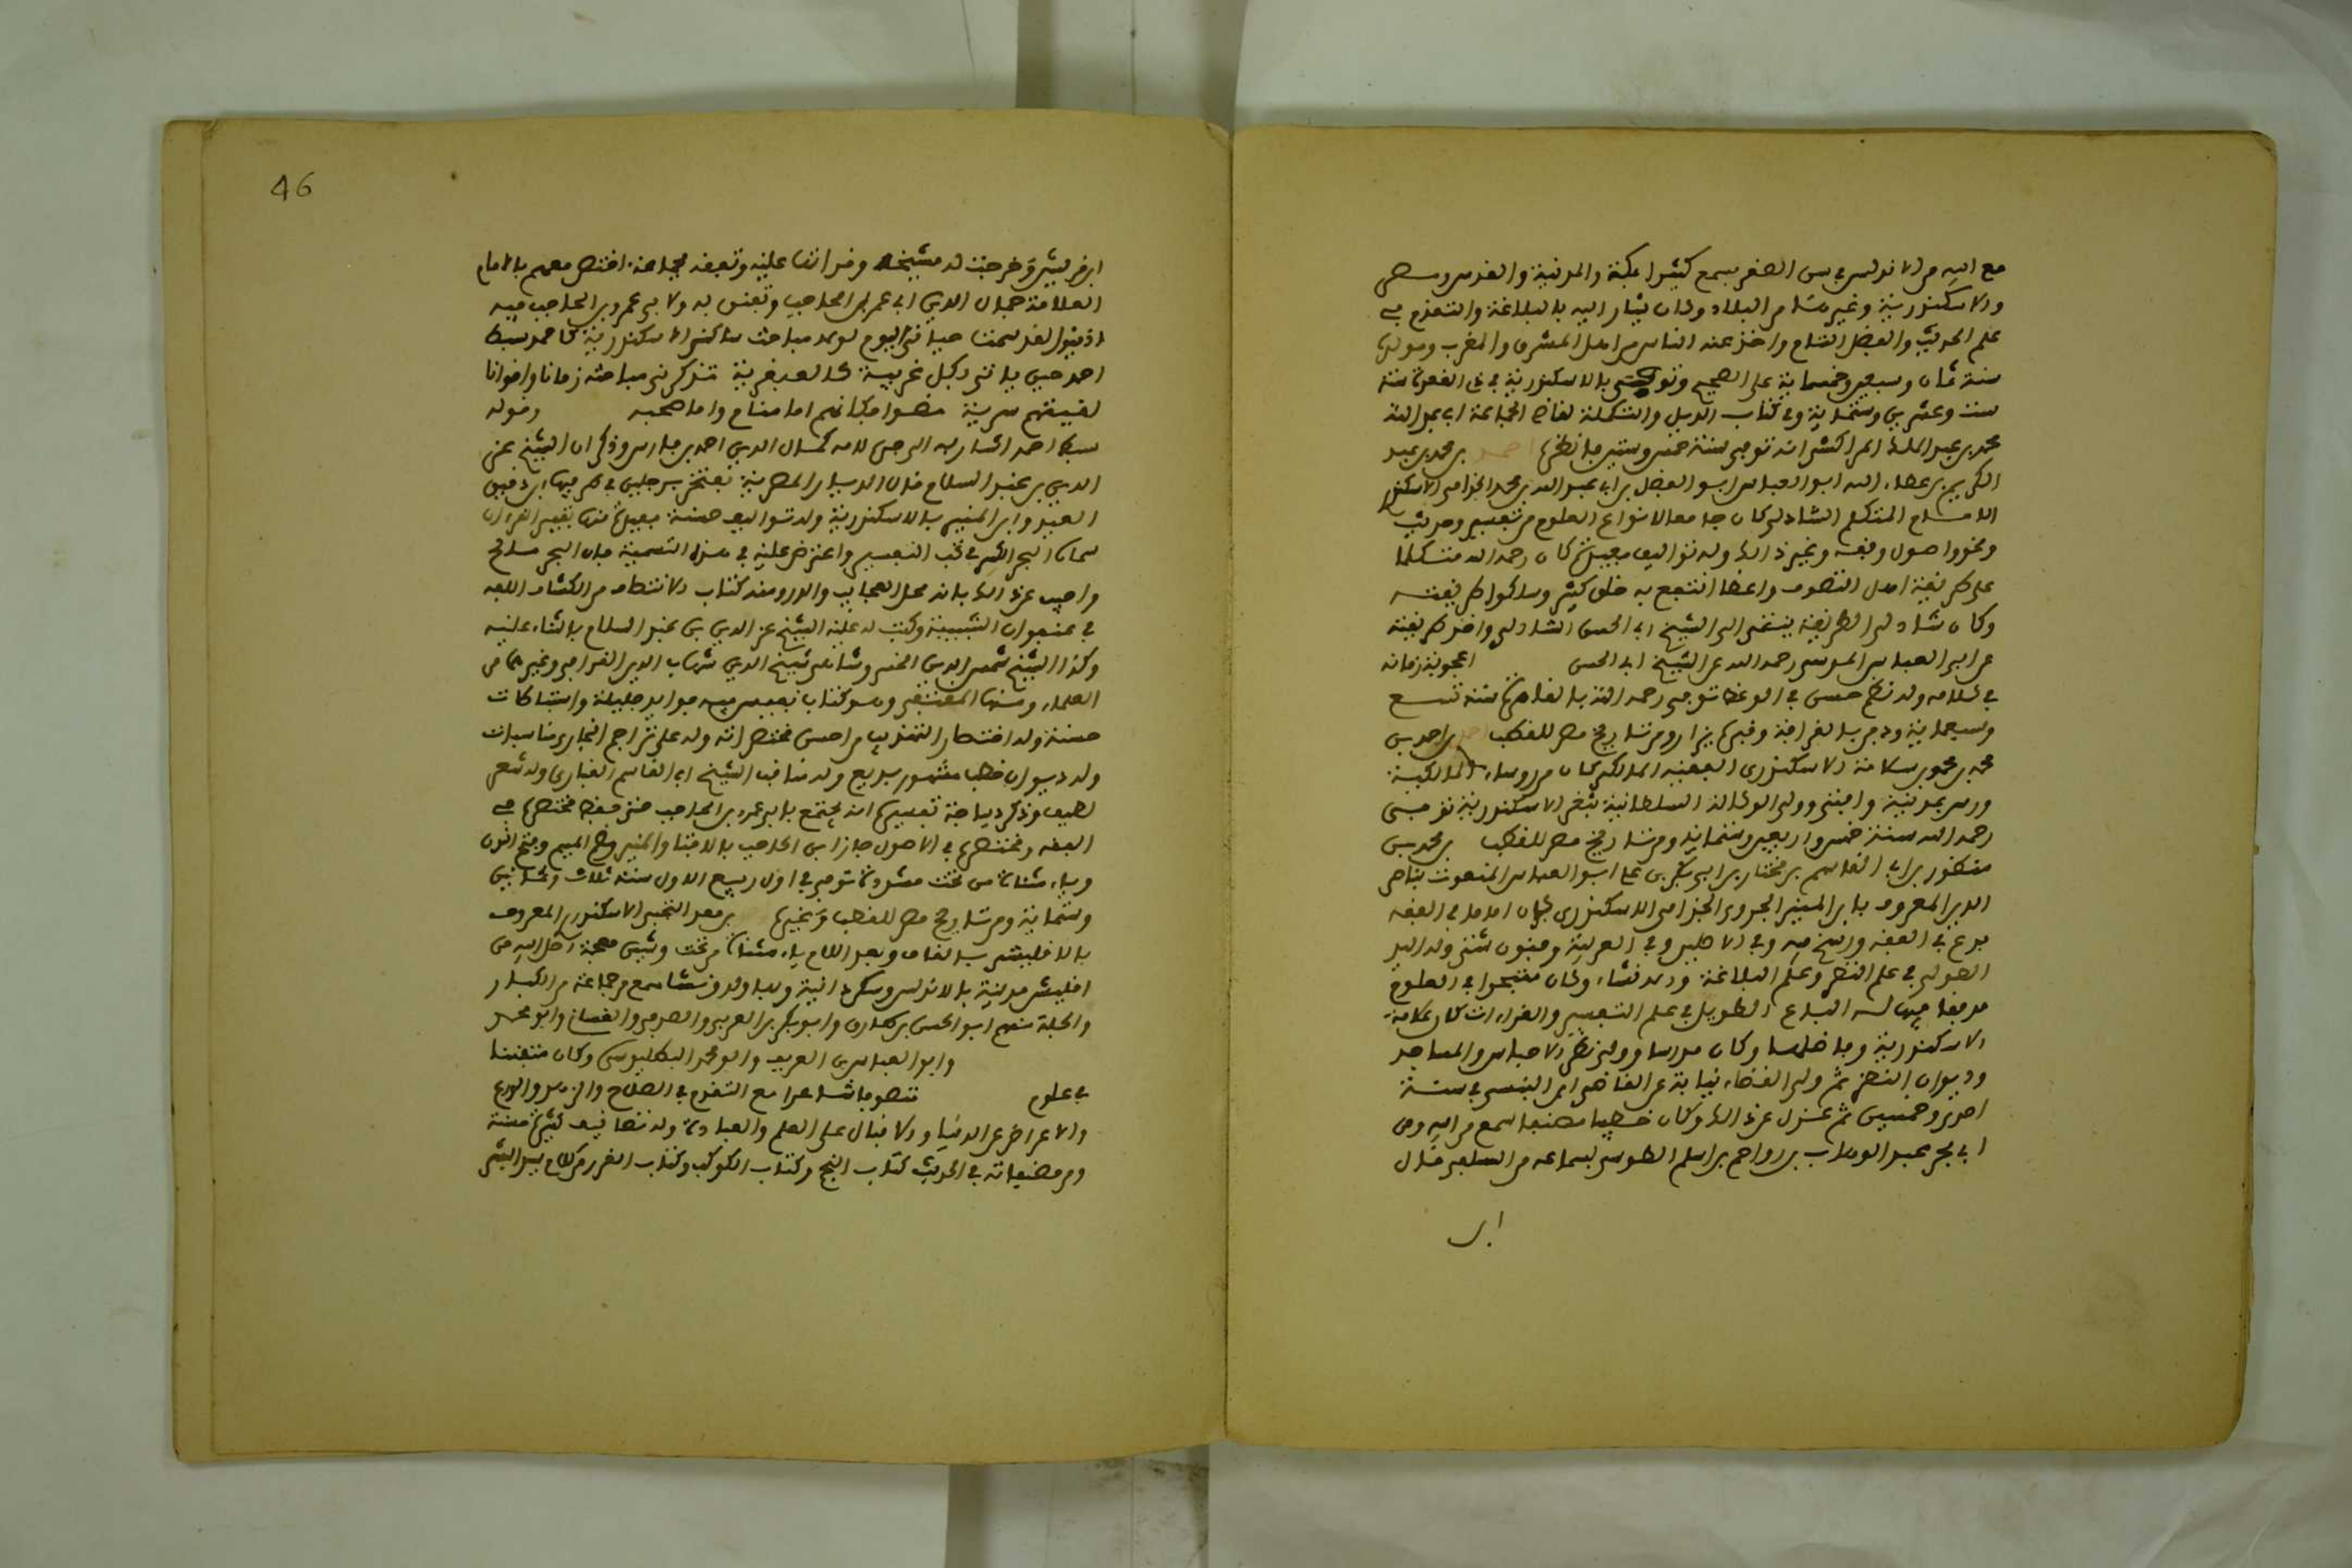 مع ابيه من الاندلس في سن الصغر سمع كثيرا بمكة والمدينة والقدس ومصر
والاسكندرية وغيرها من البلاد وكان يشار اليه بالبلاغة والتقدم في
علم الحديث والفضل التام واخذ عنه الناس من اهل المشرق والمغرب ومولده
سنة ثمان وسبعين وخمسماية على الصحيح وتوفي بالاسكندرية في ذي القعدة سنة
ست وعشرين وستماية وفي كتاب الذيل والتكملة لقاضي الجماعة ابي عبد الله
محمد بن عبد الملك المراكشي انه توفي سنة خمس وستين فانظرها احمد بن محمد بن عبد
الكريم بن عطاء الله ابو العباس ابو الفضل بن ابي عبد الله بن محمد الجزامي الاسكندري
الامام المتكلم الشاذلي كان جامعا لانواع العلوم من تفسير وحديث
ونحو واصول وفقه وغير ذلك وله تواليف مفيدة كان رحمه الله متكلما
على طريقة اهل التصوف واعظا انتفع به خلق كثير وسلكوا طريقته
وكان شاذلي الطريقة ينتمي الى الشيخ ابي الحسن الشاذلي واخذ طريقته
عن ابي العباس المرسي رحمه الله عن الشيخ ابي الحسن اعجوبة زمانه
في كلامه وله نظم حسن في الوعظ توفي رحمه الله بالقاهرة سنة تسع
وسبعماية ودفن بالقرافة وقبره يزار ومن تاريخ مصر للقطب احمد بن احمد بن
محمد بن محمود بن سلامة الاسكندري الفقيه المالكي كان من روساء المالكية
درس بمدينة وافتى وولي الوكالة السلطانية بثغر الاسكندرية توفي
رحمه الله سنة خمس واربعين وستماية ومن تاريخ مصر للقطب بن محمد بن
منصور بن ابي القاسم بن مختار بن ابي بكر بن علي ابو العباس المنعوت بناصر
الدين المعروف بابن المنير الجروي الجذامي الاسكندري كان اماما في الفقه
برع في الفقه ورسخ فيه وفي الاصلين وفي العربية وفنون شتى وله اليد
الطولى في علم النظر وعلم البلاغة والانشاء وكان متبحرا في العلوم
مدققا فيها له الباع الطويل في علم التفسير والقراءات كان علامة
الاسكندرية وفاضلها وكان مدرسا وولي نظر الاحباس والمساجد
وديوان النظر ثم ولي القضاء نيابة عن القاضي ابن التنسي في سنة
احدى وخمسين ثم عزل عن ذلك وكان خطيبا مصقعا سمع من ابيه ومن
ابي بكر عبد الوهاب بن رواح بن اسلم الطوسي بسماعه من السلفي قال
ابن
46
ابن فريش وخرجت له مشيخة وقراتها عليه وتفقه بجماعة اختص معهم بالامام
العلامة جمال الدين ابي عمرو بن الحاجب وتفنن به ولابي عمرو بن الحاجب فيه
لقد سمت حياتي اليوم لولا مباحث ساكن الاسكندرية كاحمد سبط
احمد حين ياتي بكل غريبة كالعبقرية تذكرني مباحثه زمانا واخوانا
لقيتهم سرية مضوا فكانهم اما منام واما صحبه وقوله
سبط احمد اشار به الى جده لامه كمال الدين احمد بن فارس وذكر ان الشيخ عز
الدين بن عبد السلام قال الديار المصرية تفتخر برجلين في طرفيها ابن دقيق
العيد وابن المنير بالاسكندرية وله تواليف حسنة مفيدة منها تفسير القران
سماه البحر الكبير في نخب التفسير واعترض عليه في هذه التسمية بان البحر مالح
واجيب عن ذلك بانه محل العجايب والدرر ومنه كتاب الانتصاف من الكشاف الفه
في عنفوان الشبيبة وكتب له عليه الشيخ عز الدين بن عبد السلام بالثناء عليه
وكذا الشيخ شمس الدين الخسروشاهي شيخ الدين شهاب الدين القرافي وغيرهما من
العلماء ومنها المقتفى وهو كتاب نفيس فيه فوايد جليلة واستنباطات
حسنة وله اختصار التهذيب من احسن مختصراته وله على تراجم البخاري مناسبات
وله ديوان خطب مشهور بديع وله مناقب الشيخ ابي القاسم القباري وله شعر
لطيف وذكر ديباجة تفسيره انه لم يجتمع بابي عمرو بن الحاجب حتى حفظ مختصره في
الفقه ومختصره في الاصول اجازه ابن الحاجب بالافتاء والمنير بضم الميم وفتح النون
وياء مثناة من تحت مشددة توفي في اول ربيع الاول سنة ثلاث وثمانين
وستماية ومن تاريخ مصر للقطب وغيره بن معد التجيبي الاسكندري المعروف
بالاقليشي بالقاف وبعد اللام ياء مثناة من تحت وشين معجمة اصل ابيه من
اقليش مدينة بالاندلس وسكن دانية وبها ولد ونشا سمع من جماعة من الكبار
والجلة منهم ابو الحسن بن طارق وابو بكر بن العربي والصدفي والغسان وابو محمد
وابو العباس بن العريف وابو محمد البطليوسي وكان متفننا
في علوم متصوفا شاعرا مع التقدم في الصلاح والزهد والورع
والاعراض عن الدنيا والاقبال على العلم والعبادة وله تصانيف كثيرة حسنة
ومن مصنفاته في الحديث كتاب النجم وكتاب الكوكب وكتاب الغرر من كلام سيد البشر